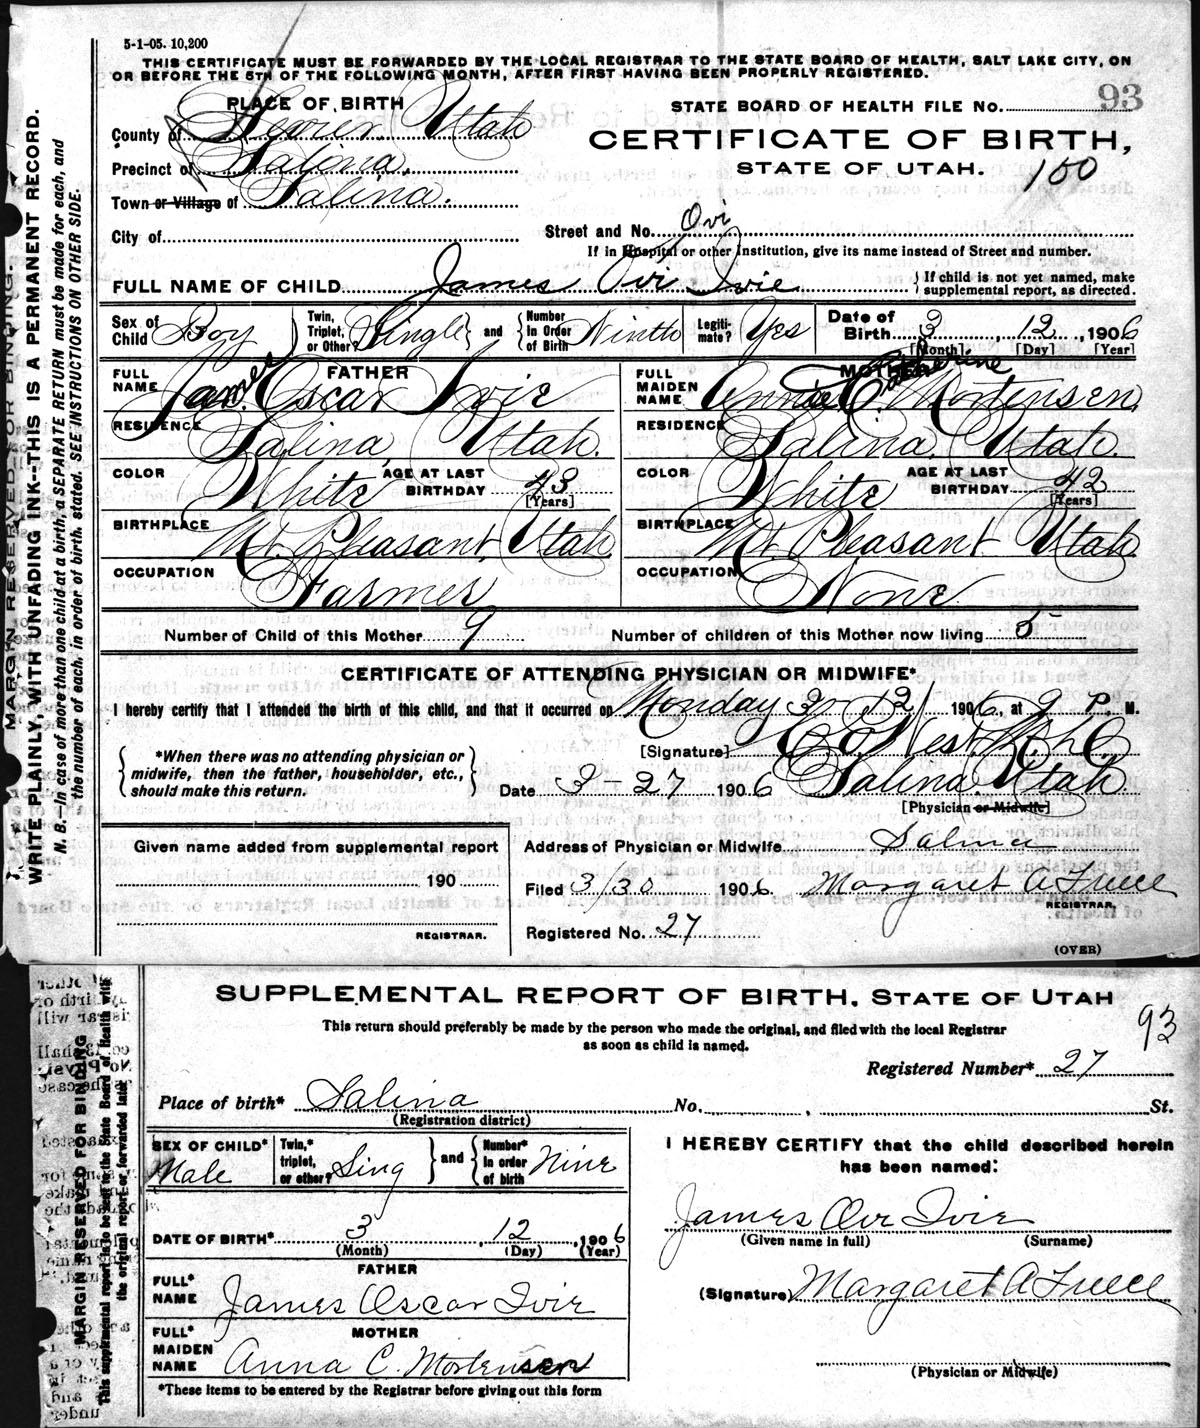 5-1-05. 10,200
THIS CERTIFICATE MUST BE FORWARDED BY THE LOCAL REGISTRAR TO THE STATE BOARD OF HEALTH, SALT LAKE CITY, ON
OR BEFORE THE 5TH OF THE FOLLOWING MONTH, AFTER FIRST HAVING BEEN PROPERLY REGISTERED.
PLACE OF BIRTH
STATE BOARD OF HEALTH FILE No. 93
County of Sevier Utah
CERTIFICATE OF BIRTH,
Precinct of Salina.
STATE OF UTAH. 100
Town or Village of Salina.
City of
Street and No. Ovi
If in Hospital or other Institution, give its name instead of Street and number.
FULL NAME OF CHILD James Ovi Ivie { If child is not yet named, make supplemental report, as directed.
Sex of Child Boy Twin, Triplet, or Other? Single } and { Number In Order of Birth Ninth Legitimate? Yes Date of Birth 3, 12, 1906
[Month] [Day] [Year]
FATHER
FULL NAME James Oscar Ivie
RESIDENCE Salina, Utah.
COLOR White AGE AT LAST BIRTHDAY 43 [Years]
BIRTHPLACE Mt. Pleasant, Utah.
OCCUPATION Farmer
MOTHER
FULL MAIDEN NAME Annie Catherine Mortensen
RESIDENCE Salina, Utah.
COLOR White AGE AT LAST BIRTHDAY 42 [Years]
BIRTHPLACE Mt Pleasant Utah
OCCUPATION None.
Number of Child of this Mother 9 Number of children of this Mother now living 5
CERTIFICATE OF ATTENDING PHYSICIAN OR MIDWIFE*
I hereby certify that I attended the birth of this child, and that it occurred on Monday 3 12 1906, at 9 P. M.
[Signature] West
*When there was no attending physician or
midwife, then the father, householder, etc.,
should make this return.
Date 3-27 1906 Salina, Utah.
[Physician or Midwife]
Given name added from supplemental report
190
REGISTRAR.
Address of Physician or Midwife Salina
Filed 3/30 1906. Margaret A
REGISTRAR.
Registered No. 27
(OVER)
MARGIN RESERVED FOR BINDING.
WRITE PLAINLY, WITH UNFADING INK--THIS IS A PERMANENT RECORD.
N. B.—In case of more than one child at a birth, a SEPARATE RETURN must be made for each, and
the number of each, in order of birth, stated. SEE INSTRUCTIONS ON OTHER SIDE.
SUPPLEMENTAL REPORT OF BIRTH, STATE OF UTAH
This return should preferably be made by the person who made the original, and filed with the local Registrar
as soon as child is named.
93
Registered Number* 27
Place of birth* Salina No. , St.
(Registration district)
SEX OF CHILD* Male Twin,* triplet, or other? Sing } and { Number* In order of birth Nine
DATE OF BIRTH* 3, 12, 1906
(Month) (Day) (Year)
FATHER
FULL* NAME James Oscar Ivie
MOTHER
FULL* MAIDEN NAME Anna C. Mortensen
*These items to be entered by the Registrar before giving out this form
I HEREBY CERTIFY that the child described herein
has been named:
James Ivie
(Given name in full) (Surname)
(Signature) Margaret A
(Physician or Midwife)
MARGIN RESERVED FOR BINDING
This supplemental report is to be sent to the State Board of Health with
the original report, or forwarded later.